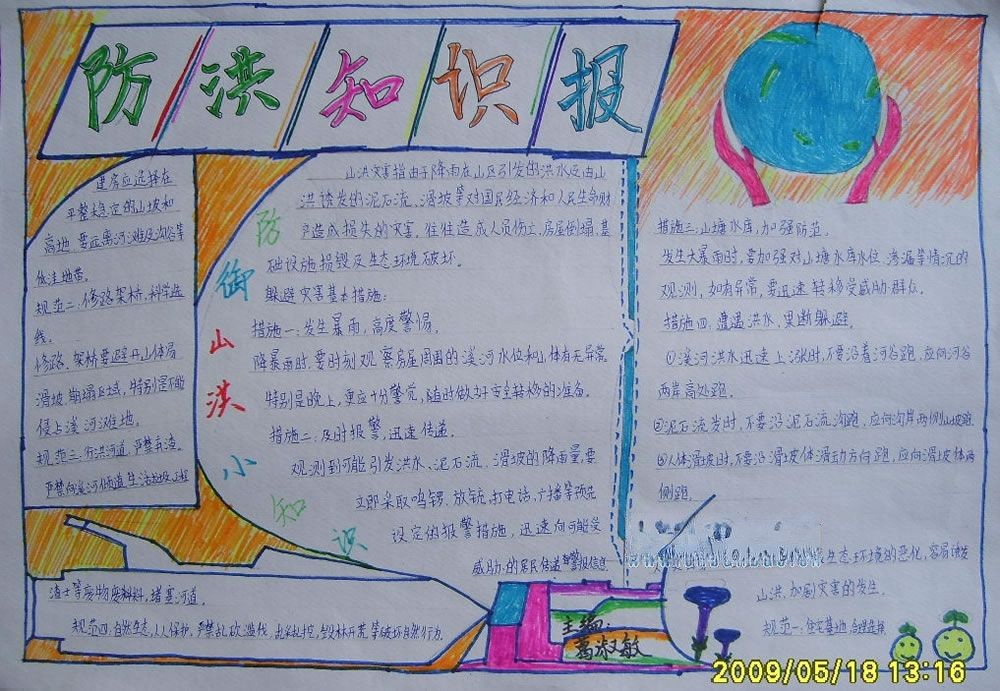 防洪知识报
防御山洪小知识
山洪灾害指由于降雨在山区引发的洪水及由山
洪诱发的泥石流、滑坡等对国民经济和人民生命财
产造成损失的灾害,往往造成人员伤亡,房屋倒塌,基
础设施损毁及生态环境破坏。
躲避灾害基本措施:
措施一:发生暴雨,高度警惕。
降暴雨时,要时刻观察房屋周围的溪河水位和山体有无异常,
特别是晚上,更应十分警觉,随时做好安全转移的准备。
措施二:及时报警,迅速传递。
观测到可能引发洪水、泥石流、滑坡的降雨量,要
立即采取鸣锣、放铳、打电话、广播等预先
设定的报警措施,迅速向可能受
威胁的居民传递警报信息
措施三:山塘水库,加强防范。
发生大暴雨时,要加强对山塘水库水位、渗漏等情况的
观测,如有异常,要迅速转移受威胁群众。
措施四:遭遇洪水,果断躲避。
①溪河洪水迅速上涨时,不要沿着河谷跑,应向河谷
两岸高处跑。
②泥石流发时,不要沿泥石流沟跑,应向沟岸两侧山坡跑
③人体滑坡时,不要沿滑坡体滑动方向跑,应向滑坡体两
侧跑。
生态环境的恶化,容易诱发
山洪、加剧灾害的发生。
规范一:住宅基地,合理选择
建房应选择在
平整稳定的山坡和
高地,要远离河滩及沟谷等
低洼地带。
规范二:修路架桥,科学选
线。
修路、架桥要避开山体易
滑坡、崩塌区域,特别是不能
侵占溪河滩地。
规范三:行洪河道,严禁弃渣。
严禁向溪河倾道生活垃圾、工程
渣土等废物废料料,堵塞河道。
规范四:自然生态,人人保护,严禁乱砍滥伐、乱采乱挖、毁林开荒等破坏自然行为.
主编:
葛淑敏
2009/05/18 13:16